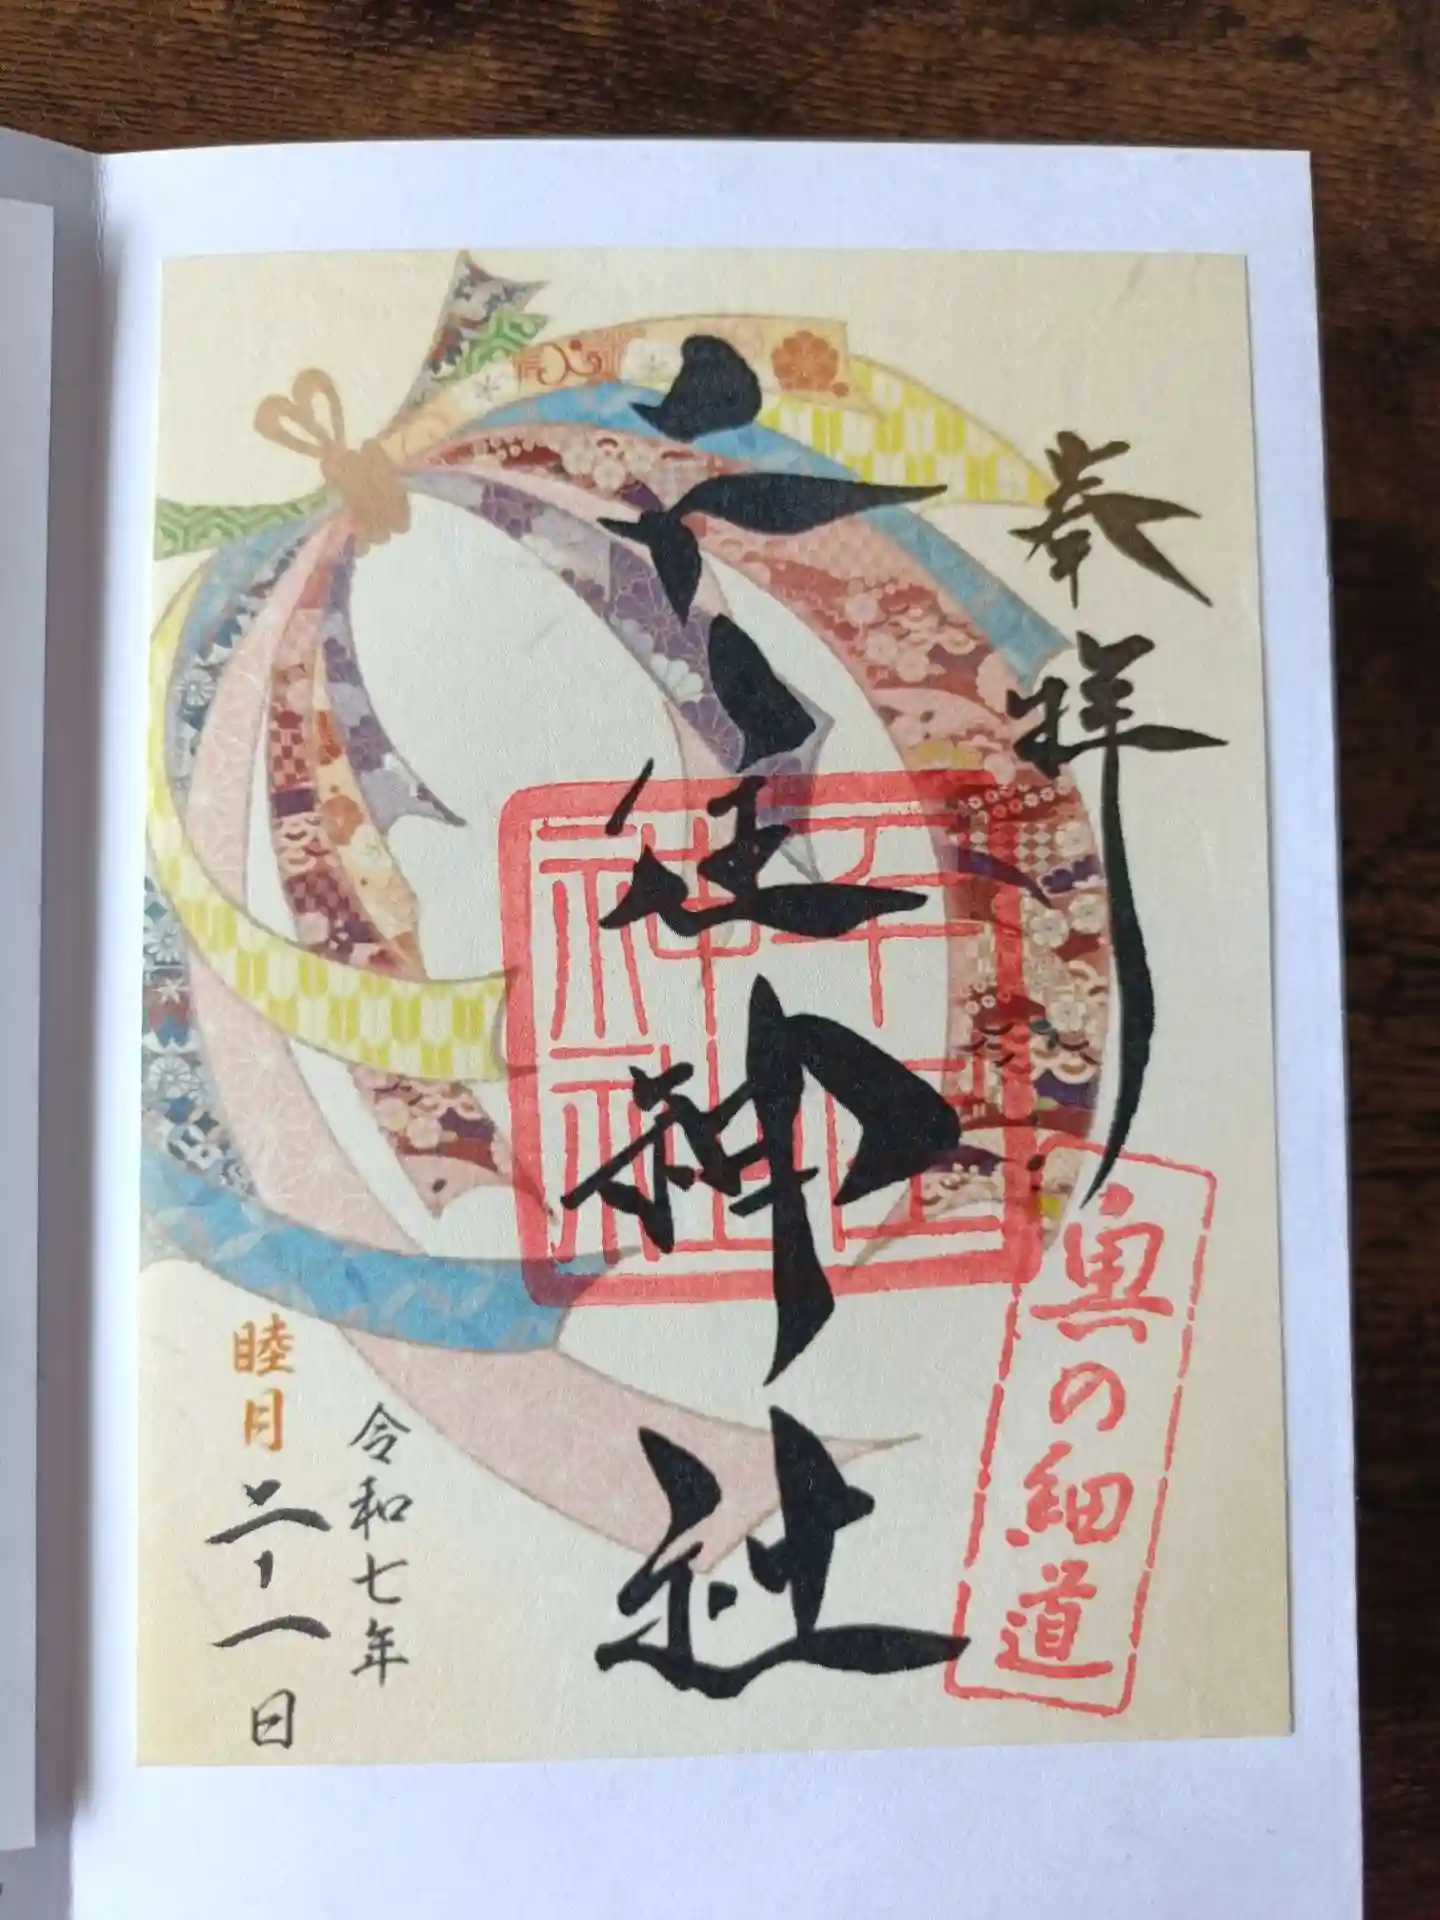 奉拝
奥の細道
千住神社
千住
神社
令和七年
睦月二十一日